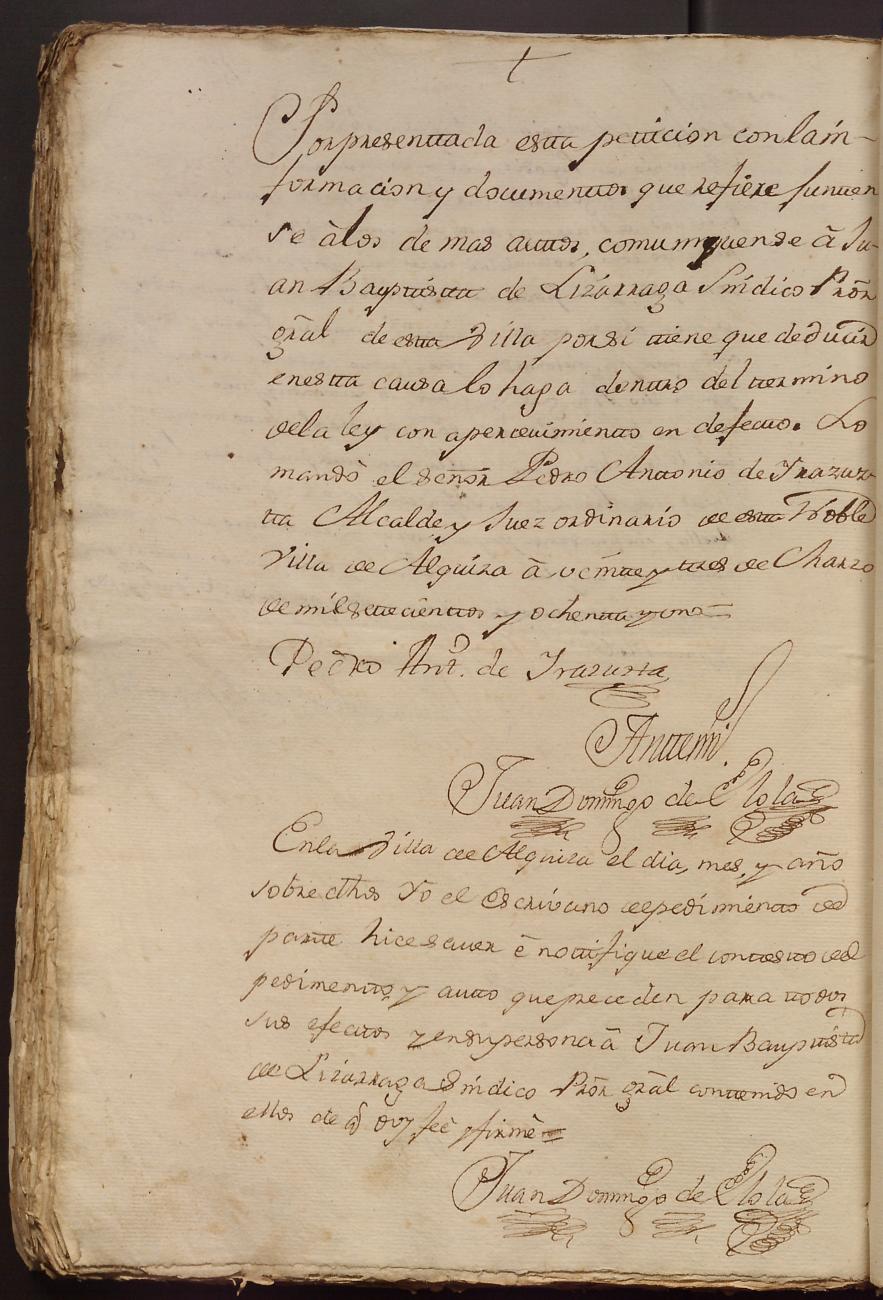 †
Por presenttada estta petticion con la in-
formacion y documenttos que refiere junten
se à los de mas auttos, comuniquense â Ju-
an Bapttistta de Lizarraga Sindico Prõr
gr̃al de estta Villa por si tiene que deducir
en estta causa lo haga denttro del termino
de la ley con apercevimientto en defectto. Lo
mandò el señor Pedro Anttonio de Yrazuz-
tta Alcalde y Juez ordinario de estta Noble
Villa de Alquiza â veintte y ttres de Marzo
de mil settecienttos y ochentta y uno =
Pedro Antº. de Yrazusta
Anttemi
Juan Domingo de Elola
En la Villa de Alquiza el dia, mes, y año
sobre dhos Yo el Escrivano de pedimientto de
partte hice saver ê nottifique el conttestto del
pedimentto, y autto que preceden para ttodos
sus efecttos y en su persona â Juan Bapttista
de Lizarraga Sindico Prõr gr̃al conttenido en
ellos de q̃ doy feè y firmè =
Juan Domingo de Elola